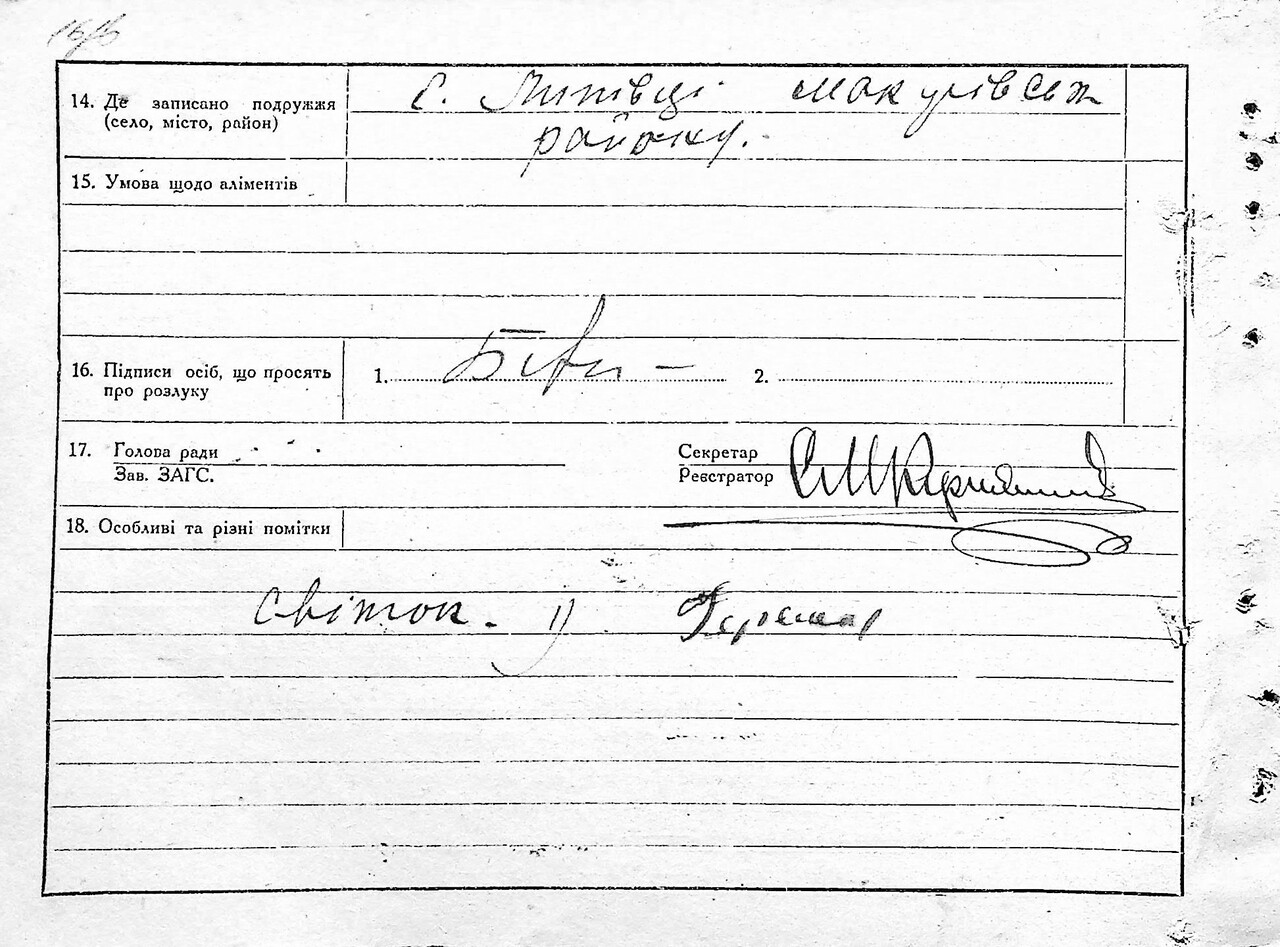 14. Де записано подружжя
(село, місто, район)
с. Липівці Макарівськ
району.
15. Умова щодо аліментів
16. Підписи осіб, що просять
про розлуку
1.
2.
17. Голова ради
Зав. ЗАГС.
Секретар
Реєстратор
18. Особливі та різні помітки
Світок.